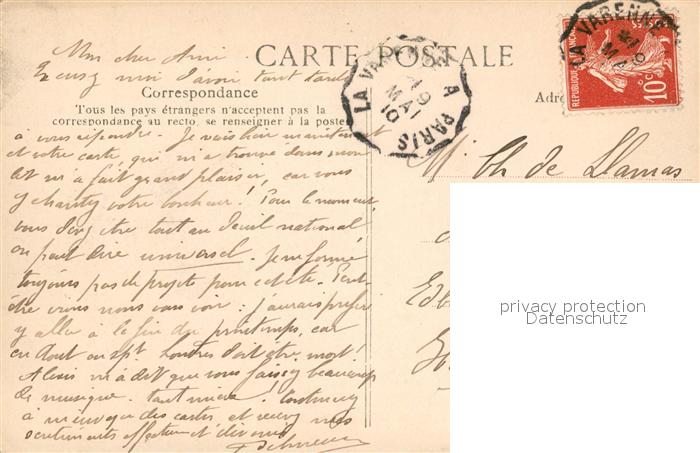 CARTE POSTALE
Mon cher Ami
Excusez moi d'avoir tant tardé
Correspondance
Tous les pays étrangers n'acceptent pas la
correspondance au recto, se renseigner à la poste
à vous répondre. Je vais bien maintenant
et votre carte, qui m'a trouvé dans mon
lit m'a fait grand plaisir, car vous
y chantez votre bonheur! Pour le moment,
vous devez être tout au deuil national
on peut dire universel. Je ne forme
toujours pas de projets pour cet été. Peut-
être irons nous vous voir: j'aurais préféré
y aller à la fin du printemps, car
en Août ou Spt. Londres doit être mort!
Alexis m'a dit que vous faisiez beaucoup
de musique. tant mieux! Continuez
à m'envoyer des cartes et recevez mes
sentiments affectueux et dévoués
LA VARENNE A PARIS
19
MAI
10
LA VARENNE
MAI
REPUBLIQUE FRANÇAISE
10c
Adre
Mr Ch de Damas
Edb
privacy protection
Datenschutz